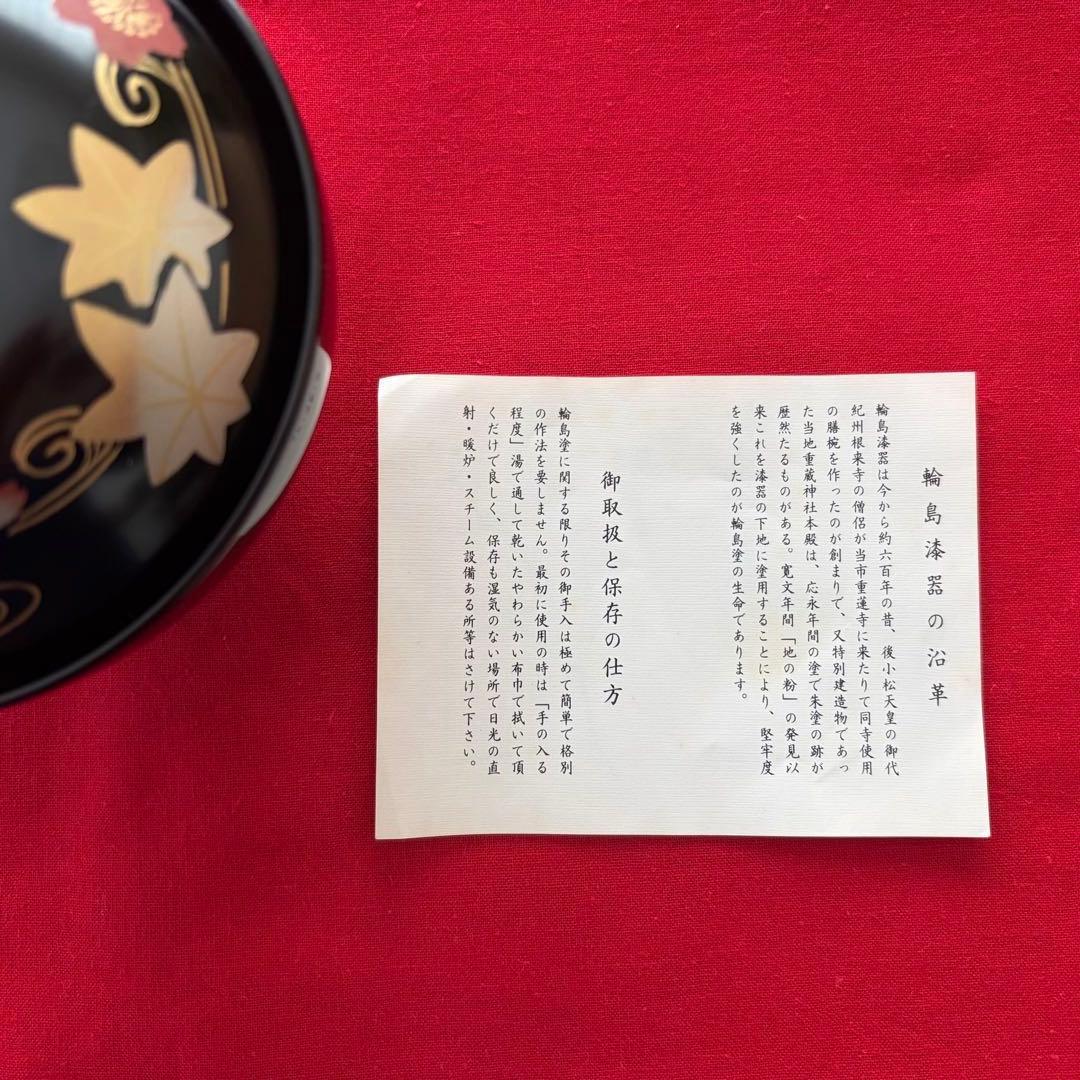 輪島漆器の沿革
輪島漆器は今から約六百年の昔、後小松天皇の御代
紀州根来寺の僧侶が当市重蓮寺に来たりて同寺使用
の膳椀を作ったのが創まりで、又特別建造物であっ
た当地重蔵神社本殿は、応永年間の塗で朱塗の跡が
歴然たるものがある。寛文年間「地の粉」の発見以
来これを漆器の下地に塗用することにより、堅牢度
を強くしたのが輪島塗の生命であります。
御取扱と保存の仕方
輪島塗に関する限りその御手入は極めて簡単で格別
の作法を要しません。最初に使用の時は「手の入る
程度」湯で通して乾いたやわらかい布巾で拭いて頂
くだけで良しく、保存も湿気のない場所で日光の直
射・暖炉・スチーム設備ある所等はさけて下さい。